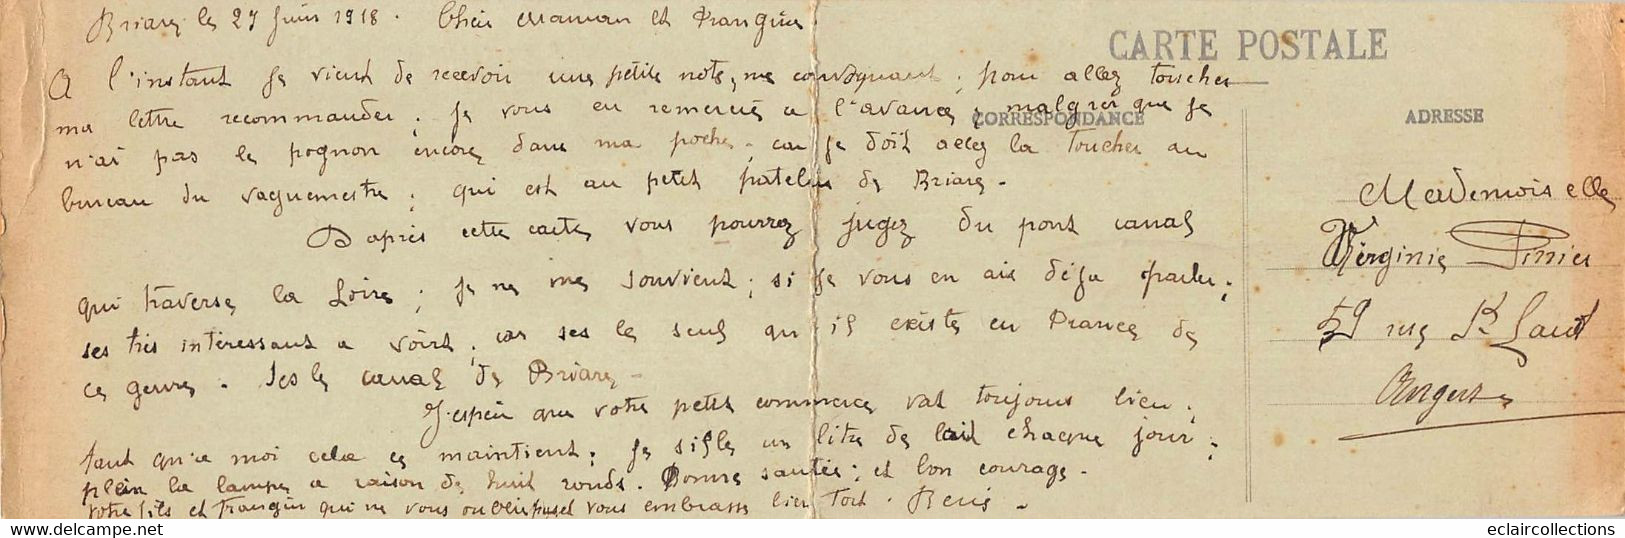 Briare, le 27 Juin 1918. Cher Maman et Frangine
CARTE POSTALE
A l'instant je vient de recevoir une petite note, me convoquant, pour allez toucher
ma lettre recommander. Je vous en remercie a l'avance, malgrer que je
CORRESPONDANCE
ADRESSE
n'ai pas le pognon encore dans ma poche, car je doit allez la toucher au
bureau du vaguemestre, qui est au petit patelin de Briare.
D'apres cette carte vous pourrez jugez du pont canal
qui traverse la Loire, je ne me souvient, si je vous en ais déja parler,
ses tres interessant a voire, car ses le seul qu'il existe en France de
ce genre. Ses le canal de Briare.
J'esper que votre petit commerce vat toujours bien,
tant qu'a moi cela ce maintient, je sifle un litre de lait chaque jour,
plein la lampe a raison de huit ronds. Bonne santée, et bon courage.
votre fils et frangin qui ne vous oublie pas et vous embrasse bien fort.
Mademoiselle
Virginie Pinier
59 rue St Laud
Angers
eclaircollections